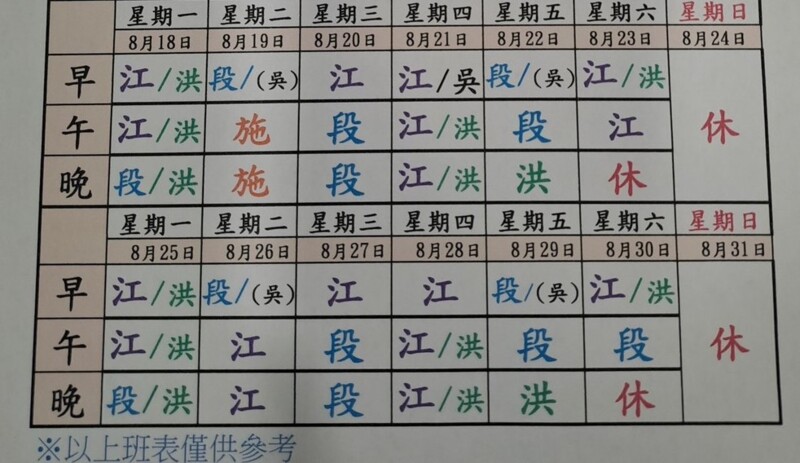 星期一 星期二 星期三 星期四 星期五 星期六 星期日
8月18日 8月19日 8月20日 8月21日 8月22日 8月23日 8月24日
早 江/洪 段/(吳) 江 江/吳 段/(吳) 江/洪
午 江/洪 施 段 江/洪 段 江 休
晚 段/洪 施 段 江/洪 洪 休
星期一 星期二 星期三 星期四 星期五 星期六 星期日
8月25日 8月26日 8月27日 8月28日 8月29日 8月30日 8月31日
早 江/洪 段/(吳) 江 江 段/(吳) 江/洪
午 江/洪 江 段 江/洪 段 段 休
晚 段/洪 江 段 江/洪 洪 休
※以上班表僅供參考